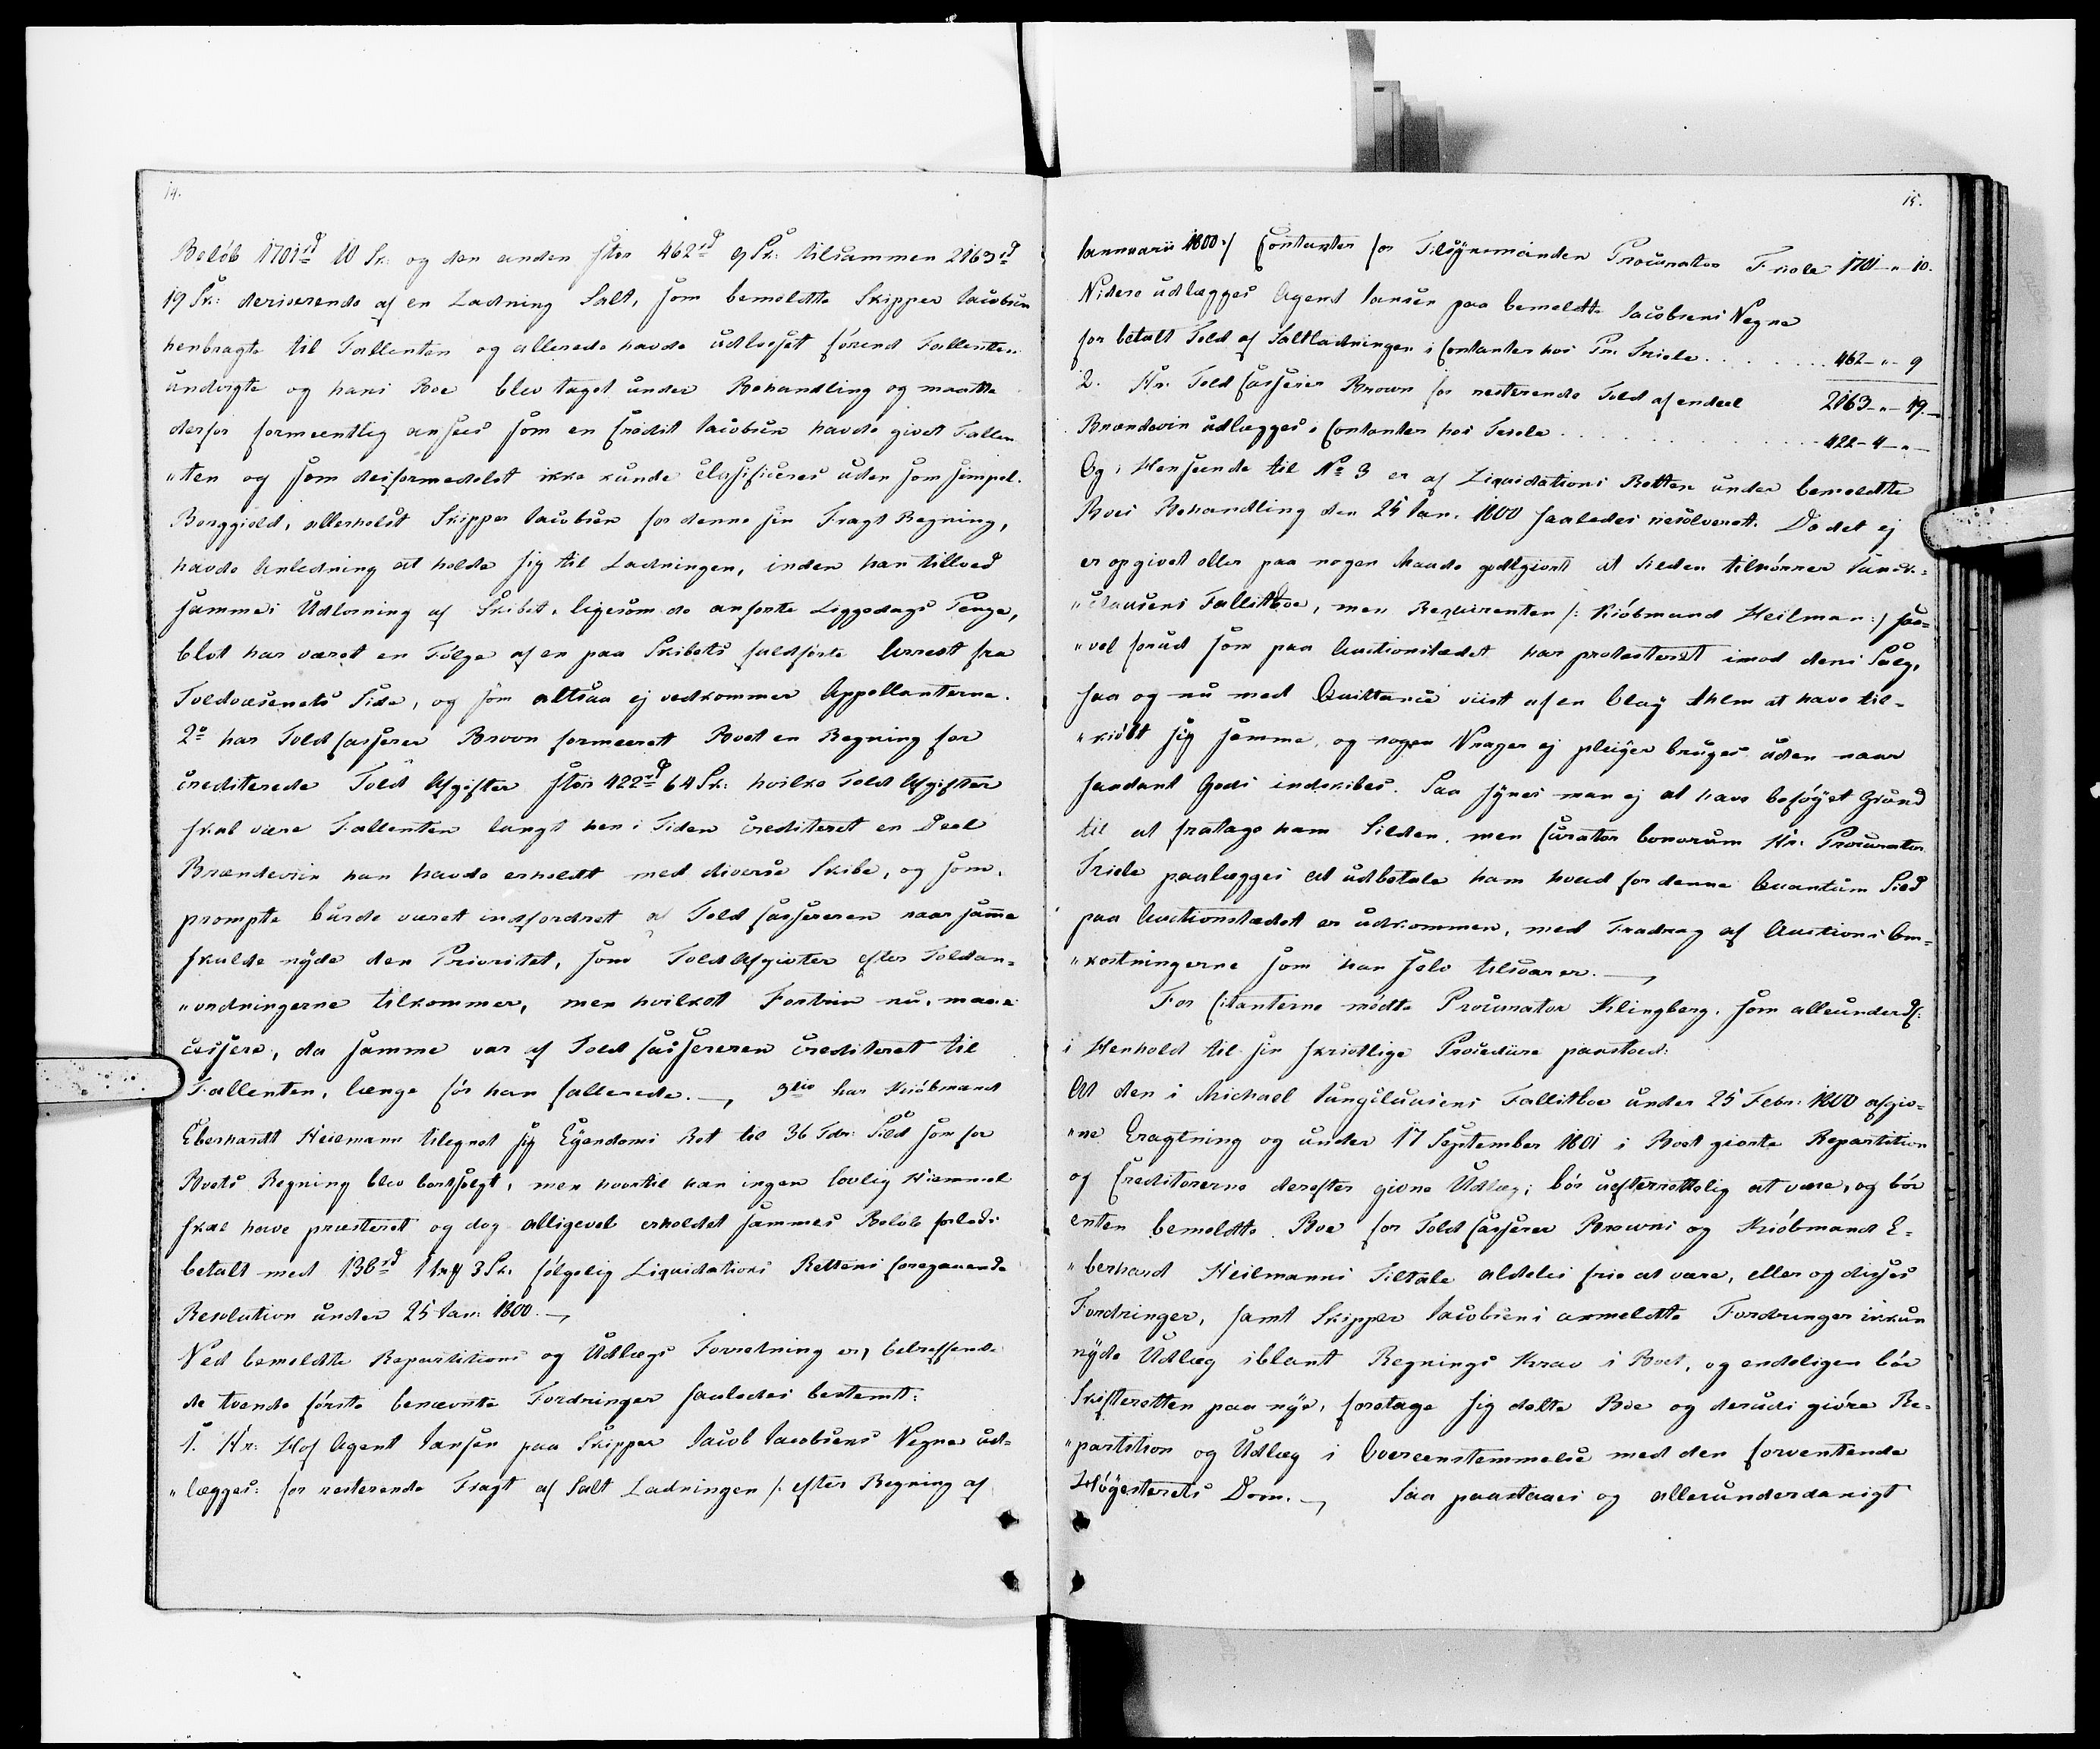 14.
Beløb 1701rd 10 Sk: og den anden stor 462rd 9 Sk: tilsammen 2163rd
19 Sk: deriverende af en Ladning Salt, som bemeldte Skipper Jacobsen
henbragte til Fallenten og allerede havde udlosset førend Fallenten
undvigte og hans Boe blev taget under Behandling og maatte
derfor formeentlig ansees som en Credit Jacobsen havde givet Fallen
"ten og som desformedelst ikke kunde classificeres uden som simpel
Borggield, allerhelst Skipper Jacobsen for denne sin Fragt Regning,
havde Anledning at holde sig til Ladningen, inden han tillod
sammes Udlosning af Skibet, ligesom de anførte Liggedags Penge,
blot har været en Følge af en paa Skibets faldførte Arrest fra
Toldvæsenets Side, og som altsaa ej vedkommer Appellanterne.
2o har Told Casserer Brown formeeret Boet en Regning for
crediterede Told Afgifter stor 422rd 64 Sk: hvilke Told Afgifter
skal være Fallenten langt hen i Tiden crediteret en Deel
Brændeviin han havde erholdt med diverse Skibe, og som
prompte burde været indfordret af Told Cassereren naar samme
skulde nyde den Prioritet, som Told Afgivter efter Toldan=
"ordningerne tilkommer, men hvilket Fortrin nu maae
cessere, da samme var af Told Casséreren crediteret til
Fallenten, længe før han fallerede. —, 3tio har Kiøbmand
Eberhardt Heilmann tilegnet sig Eyendoms Ret til 36 Tdr: Sild som for
Boets Regning blev bortsolgt, men hvortil han ingen lovlig Hiemmel
skal have præsteret og dog alligevel erholdet sammes Beløb
betalt med 138rd 1 mk 3 Sk: følgelig Liquidations Rettens foregaaende
Resolution under 25 Jan: 1800. —,
Ved bemeldte Repartitions og Udlægs Forretning er, betreffende
de tvende første benævnte Fordringer saaledes bestemt:
1. Hr: Hof Agent Jansen paa Skipper Jacob Jacobsens Vegne ud=
"lægges: for resterende Fragt af Salt Ladningen /: efter Regning af
15.
Jannuarii 1800 :/ Contanter for Tilsynsmanden Procurator Friele 1701 - " - 10.
Videre udlægges Agent Jansen paa bemeldte Jacobsens Vegne
for betalt Told af Saltladningen i Contanter hos Pr. Friele . . . . . . 462 - " - 9
2163 - " - 19.
2. Hr: Told Casserer Brown for resterende Told af endeel
Brændeviin udlægges i Contanter hos . . . . . . . . . . 422 - 4 - " -
Og i Henseende til No 3 er af Liquidations Retten under bemeldte
Boes Behandling den 25 Jan. 1800 saaledes resolveret. Da det ej
er opgivet eller paa nogen Maade godtgiort at Silden tilhørrer Jung=
"clausens Fallitboe, men Requirenten /: Kiøbmand Heilman :/ saa=
"vel forud som paa Auctionstædet har protesteret imod dens Salg,
saa og nu med Quittance viist af en Olay Ahlm at have til=
"kiøbt sig samme, og nogen Vrager ej pleiyer bruges uden naar
saadant Gods indskibes. Saa synes man ej at have beføyet Grund
til at fratage ham Silden, men Curator bonorum Hr: Procurator
Friele paalægges at udbetale ham hvad for denne Quantum Sild
paa Auctionstædet er udkommen, med Fradrag af Auctions Om=
"kostningerne som han selv tilsvarer. —,
For Citanterne mødte Procurator Klingberg, som allerunderd:
i Henhold til sin skrivtlige Procedure paastoed:
At den i Michael Jungclausens Fallitboe under 25 Febr: 1800 afgiv=
"ne Eragtning og under 17 September 1801 i Boet giorte Repartition
og Creditorerne derefter givne Udlæg, bør uefterrettelig at være, og bør
enten bemeldte Boe for Told Casserer Browns og Kiøbmand E=
"berhard Heilmanns Tiltale aldeles frie at være, eller og disses
Fordringer, samt Skipper Jacobsens anmeldte Fordringer ikkun
nyde Udlæg iblant Regnings Krav i Boet, og endeligen bør
Skifteretten paa nye, foretage sig dette Boe og derudi giøre Re=
"partition og Udlæg i Overeenstemmelse med den forventende
Høyesterets Dom. —, Saa paastaaes og allerunderdanigt